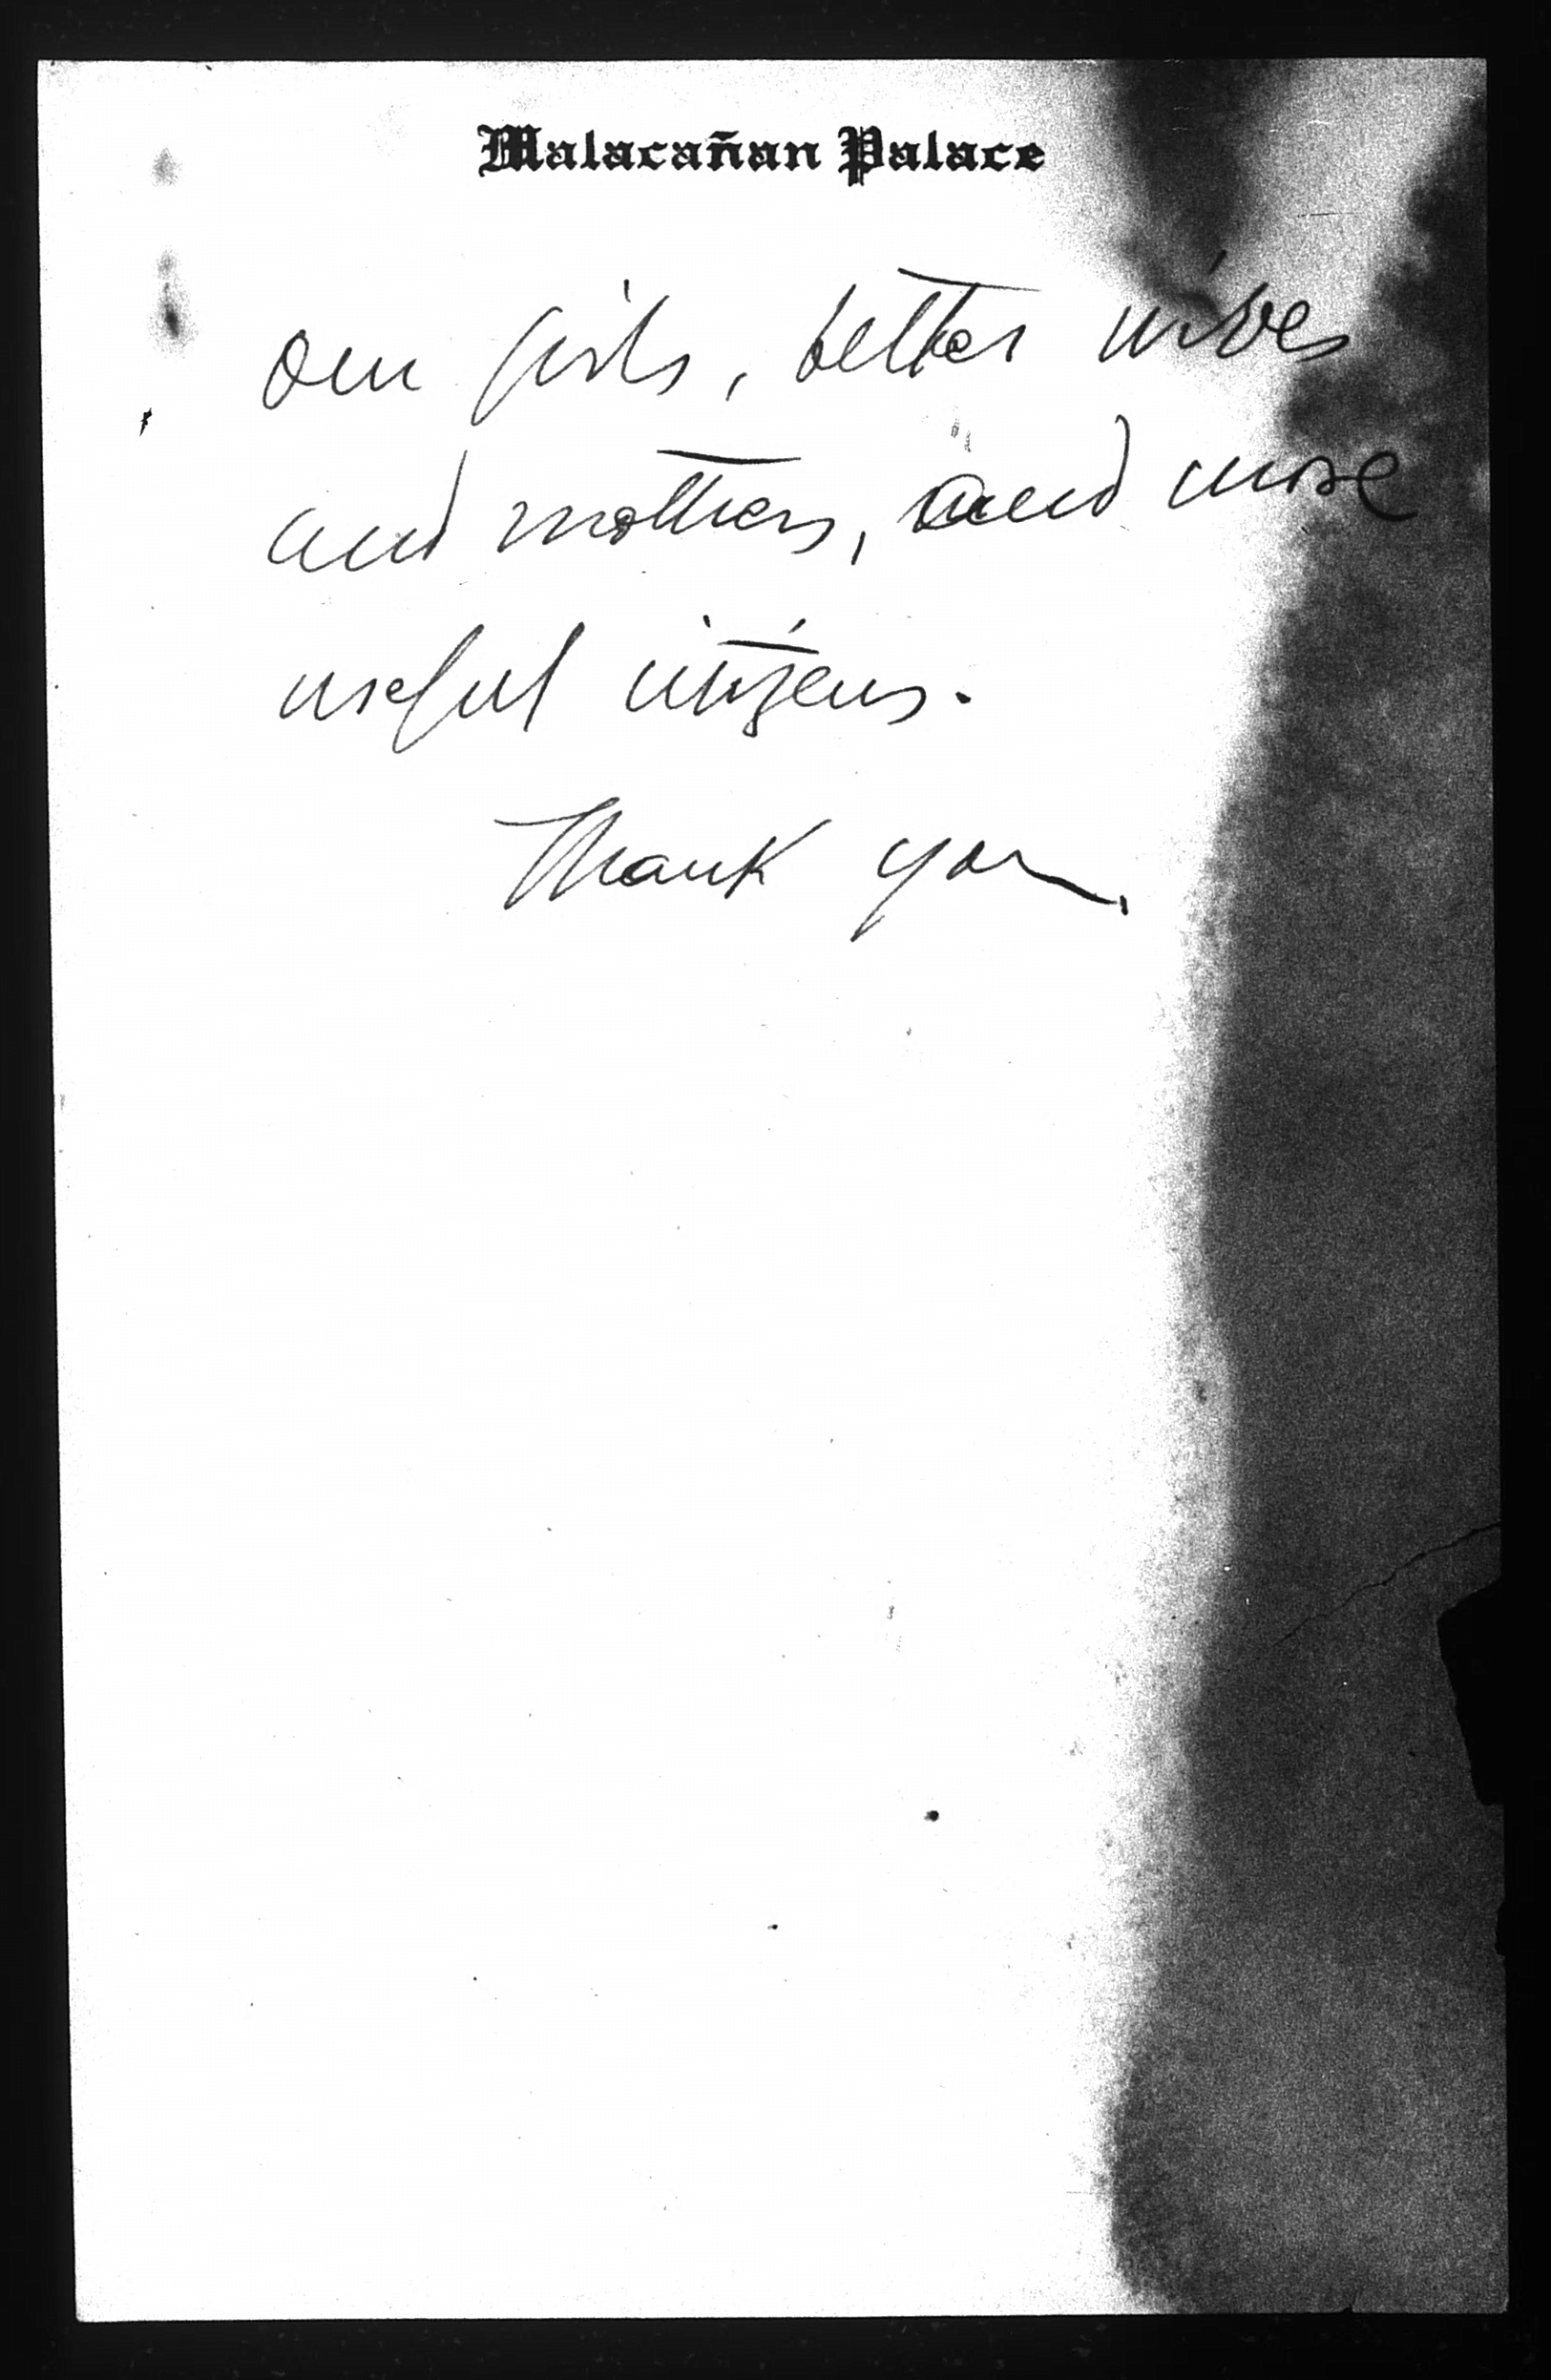 Malacañan Palace
our girls, better wives
and mothers, and more
useful citizens.
Thank you.